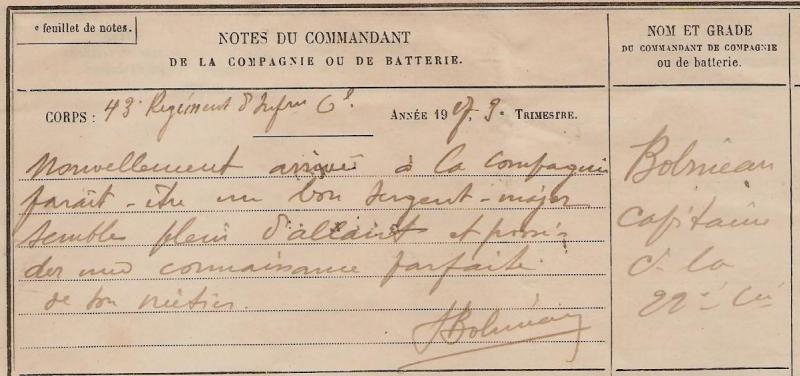 e feuillet de notes.
NOTES DU COMMANDANT
DE LA COMPAGNIE OU DE BATTERIE.
CORPS : 43e Régiment d'Infrie Cle
ANNÉE 1917, 3e TRIMESTRE.
Nouvellement arrivé à la compagnie
parait-être un bon sergent-major
semble plein d'allant et possé-
der une connaissance parfaite
de son métier.
NOM ET GRADE
DU COMMANDANT DE COMPAGNIE
ou de batterie.
capitaine
Ct la
22e Cie